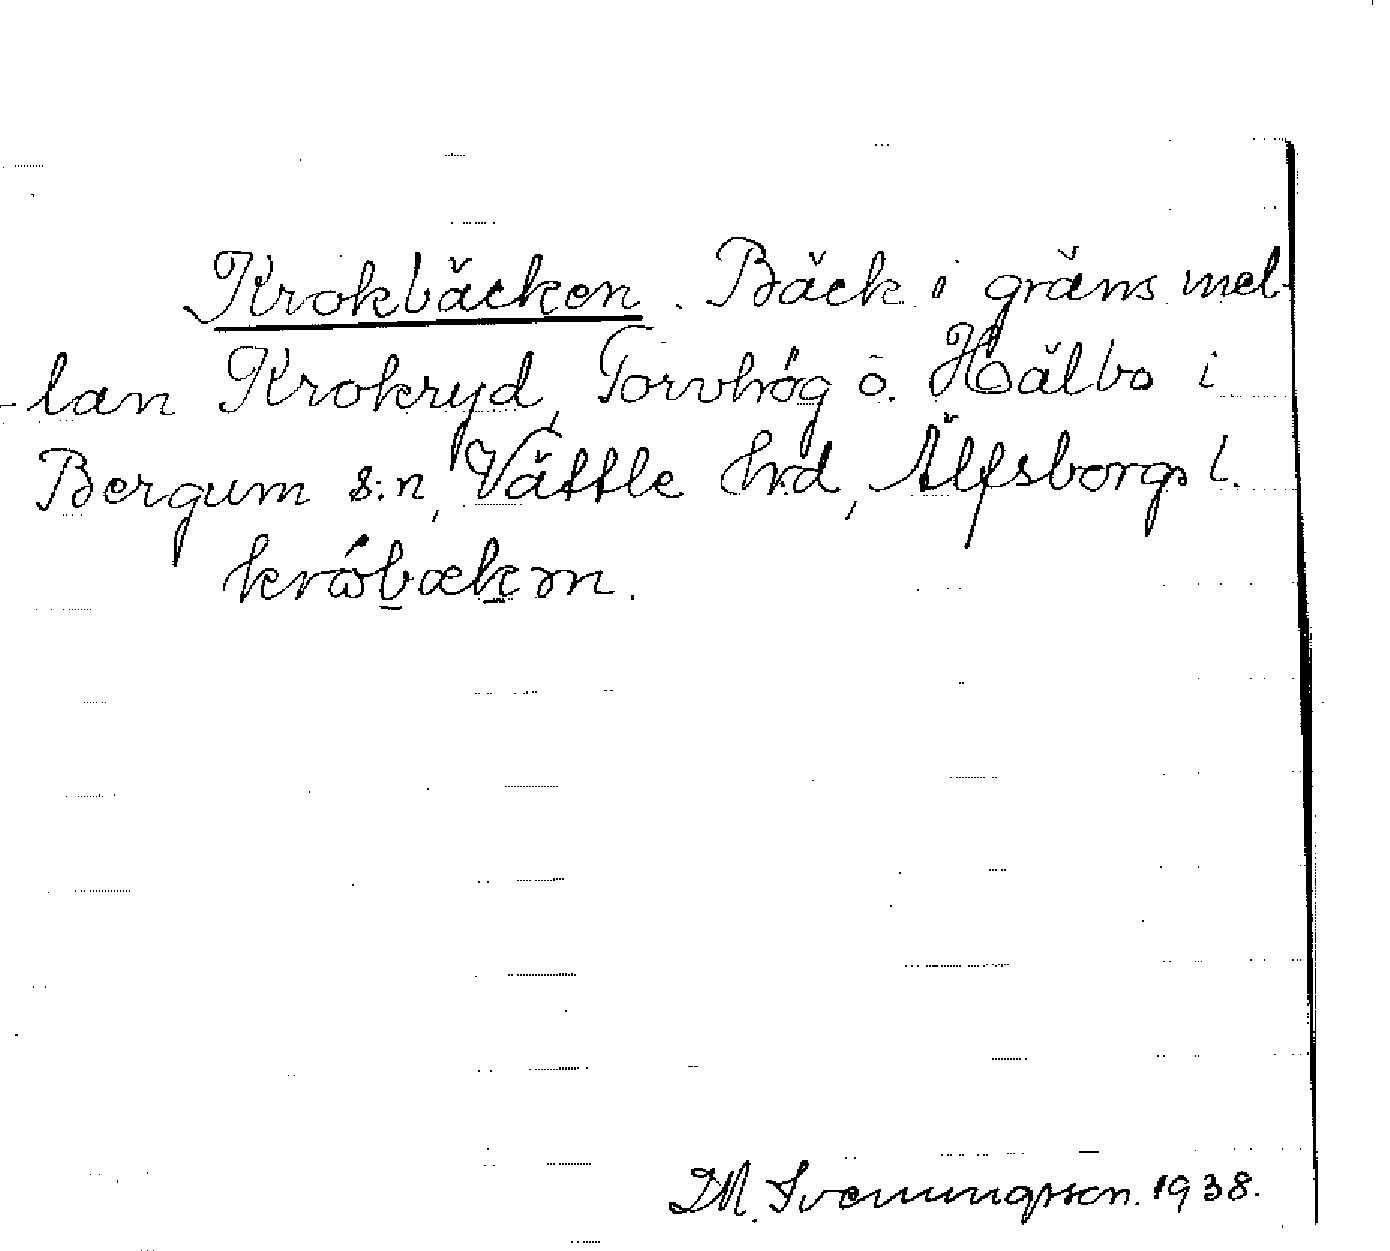 Krokbäcken. Bäck i gräns mel-
lan Krokryd, Torvhög o. Hälbo i
Bergum s:n, Vättle hrd, Älfsborgs l.
D.M. Svenungsson. 1938.